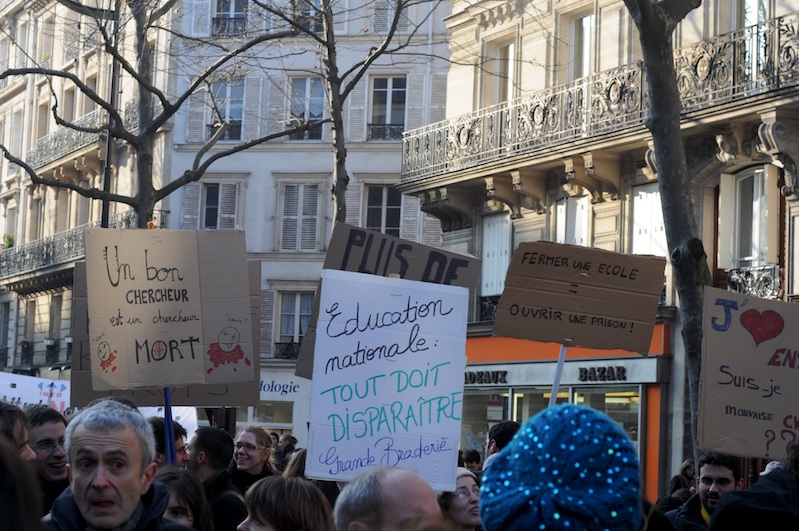 Un bon
CHERCHEUR
est un chercheur
MORT
PLUS DE
Education
nationale:
TOUT DOIT
DISPARAÎTRE
Grande Braderie
FERMER UNE ECOLE
OUVRIR UNE PRISON!
J'
SUIS-je
MAUVAISE
??
BAZAR